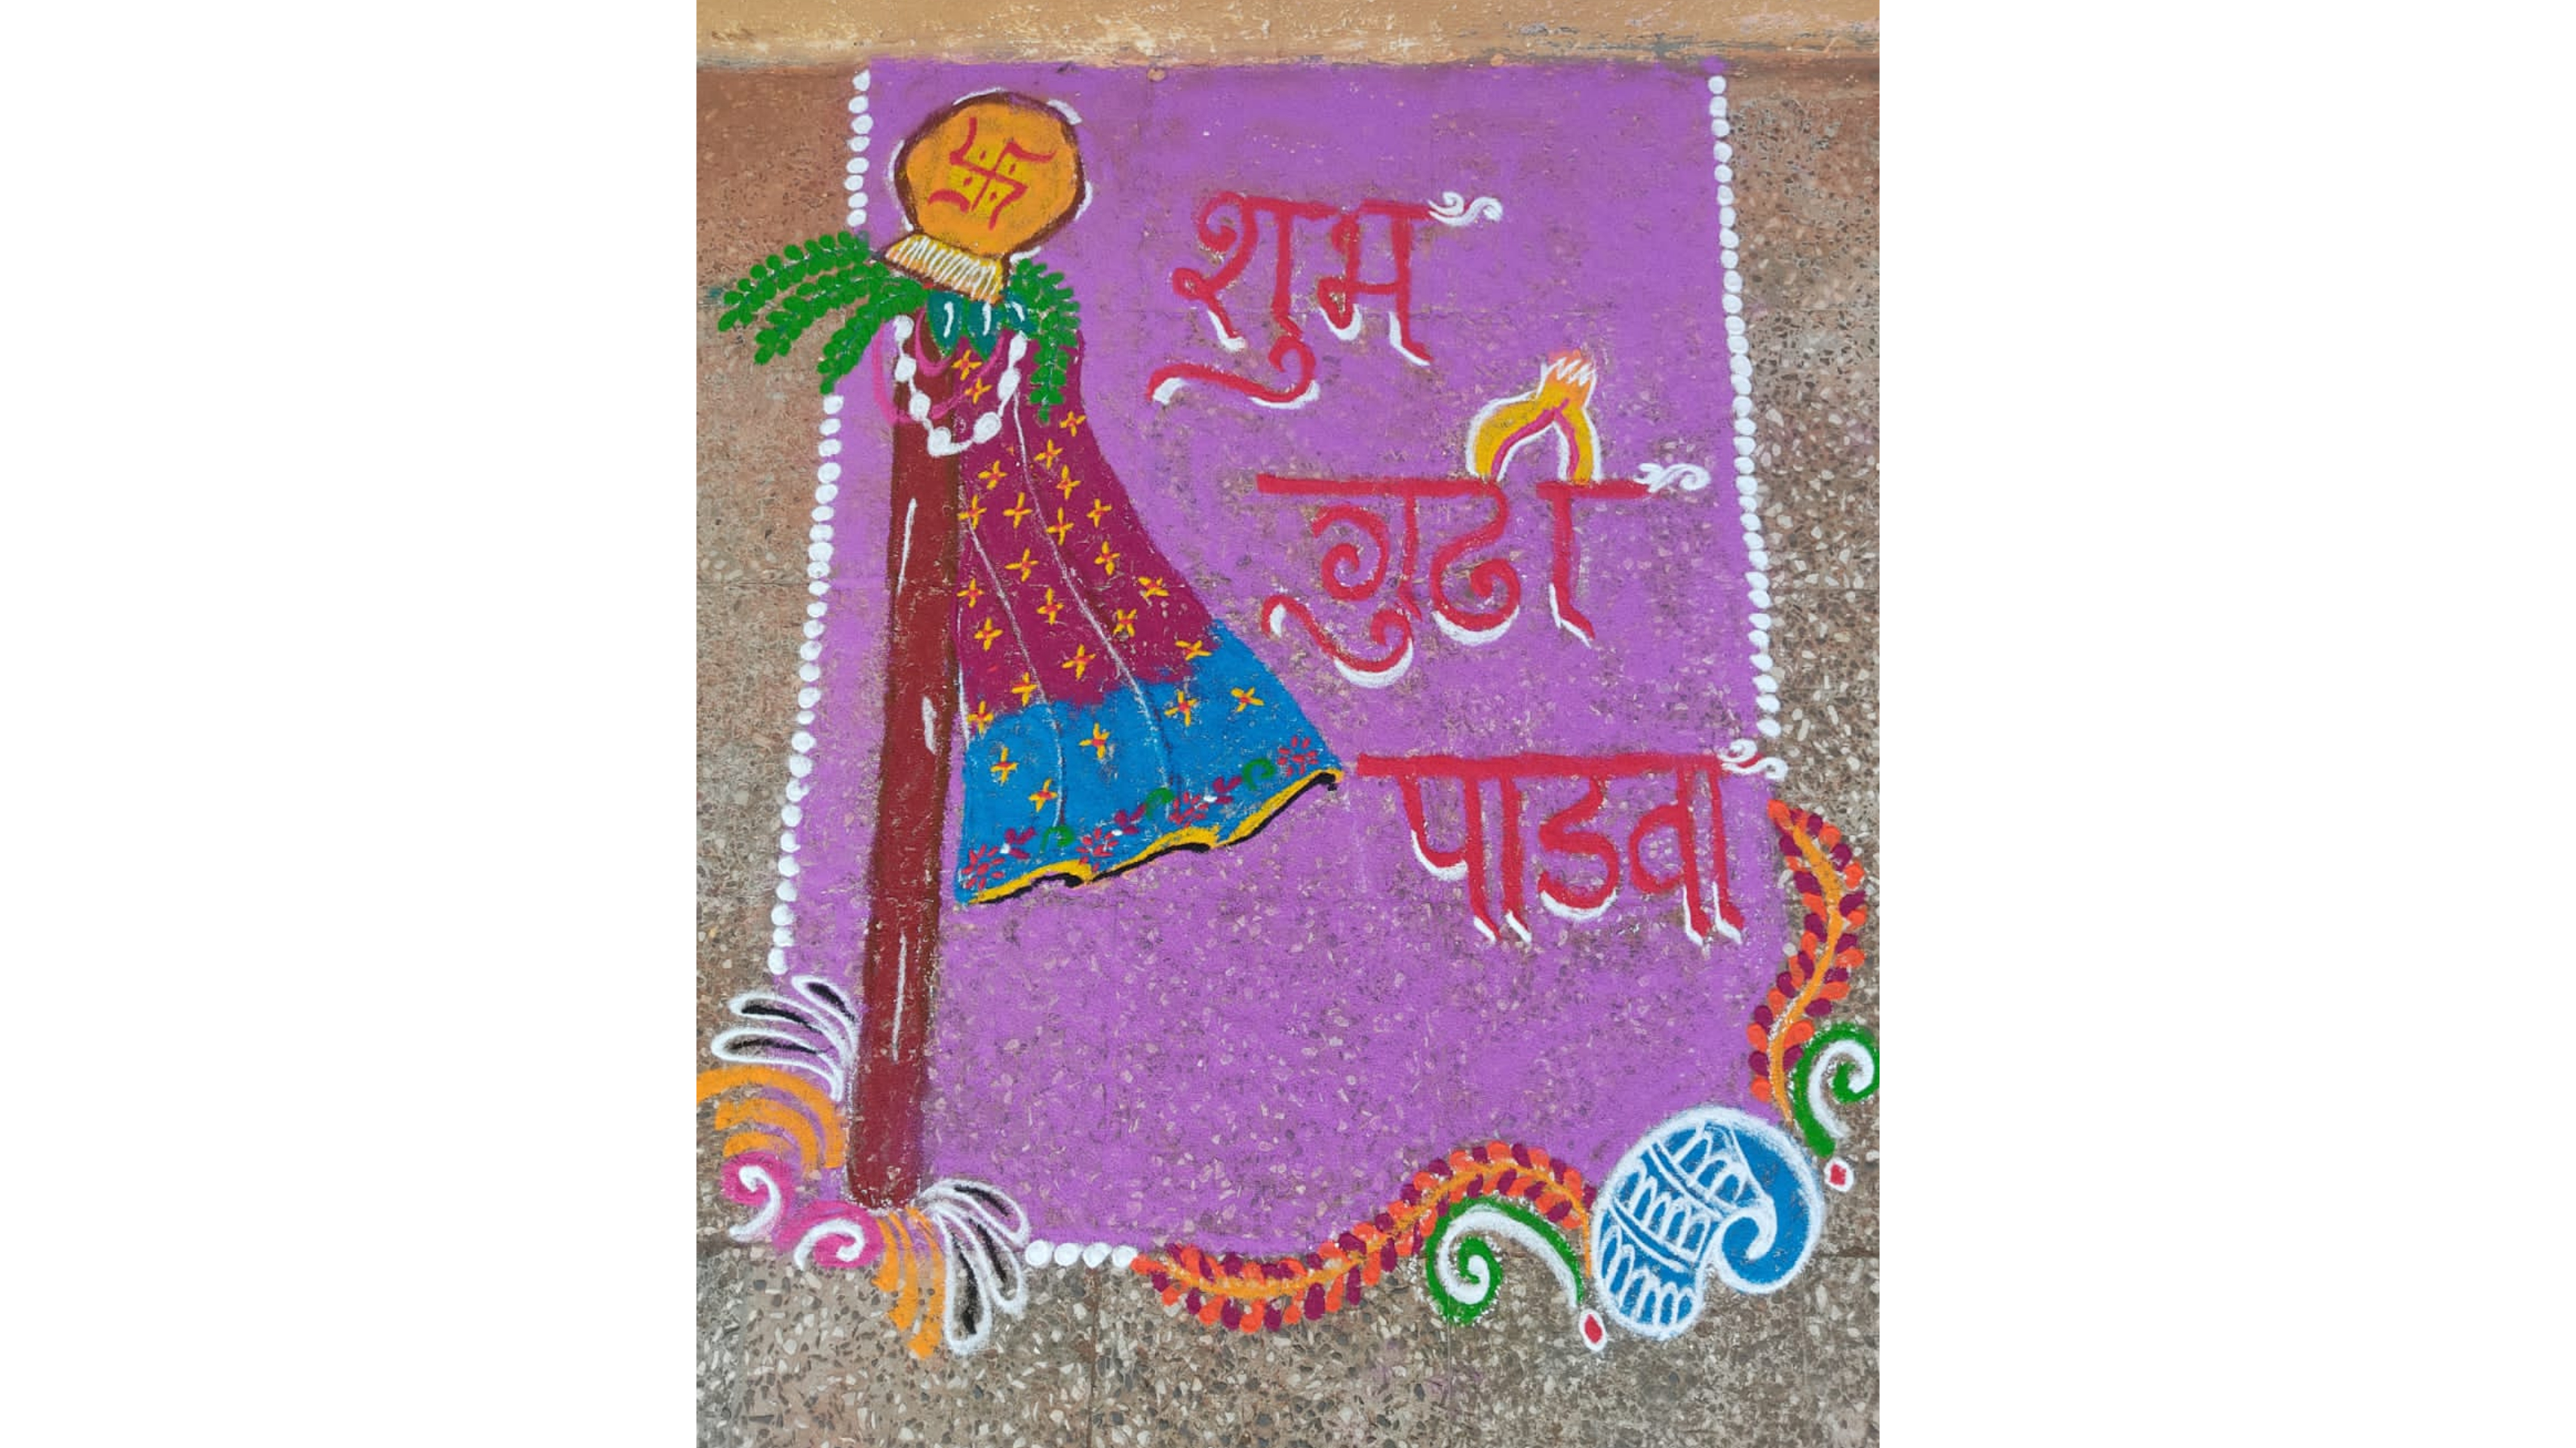 शुभ
गुढी
पाडवा